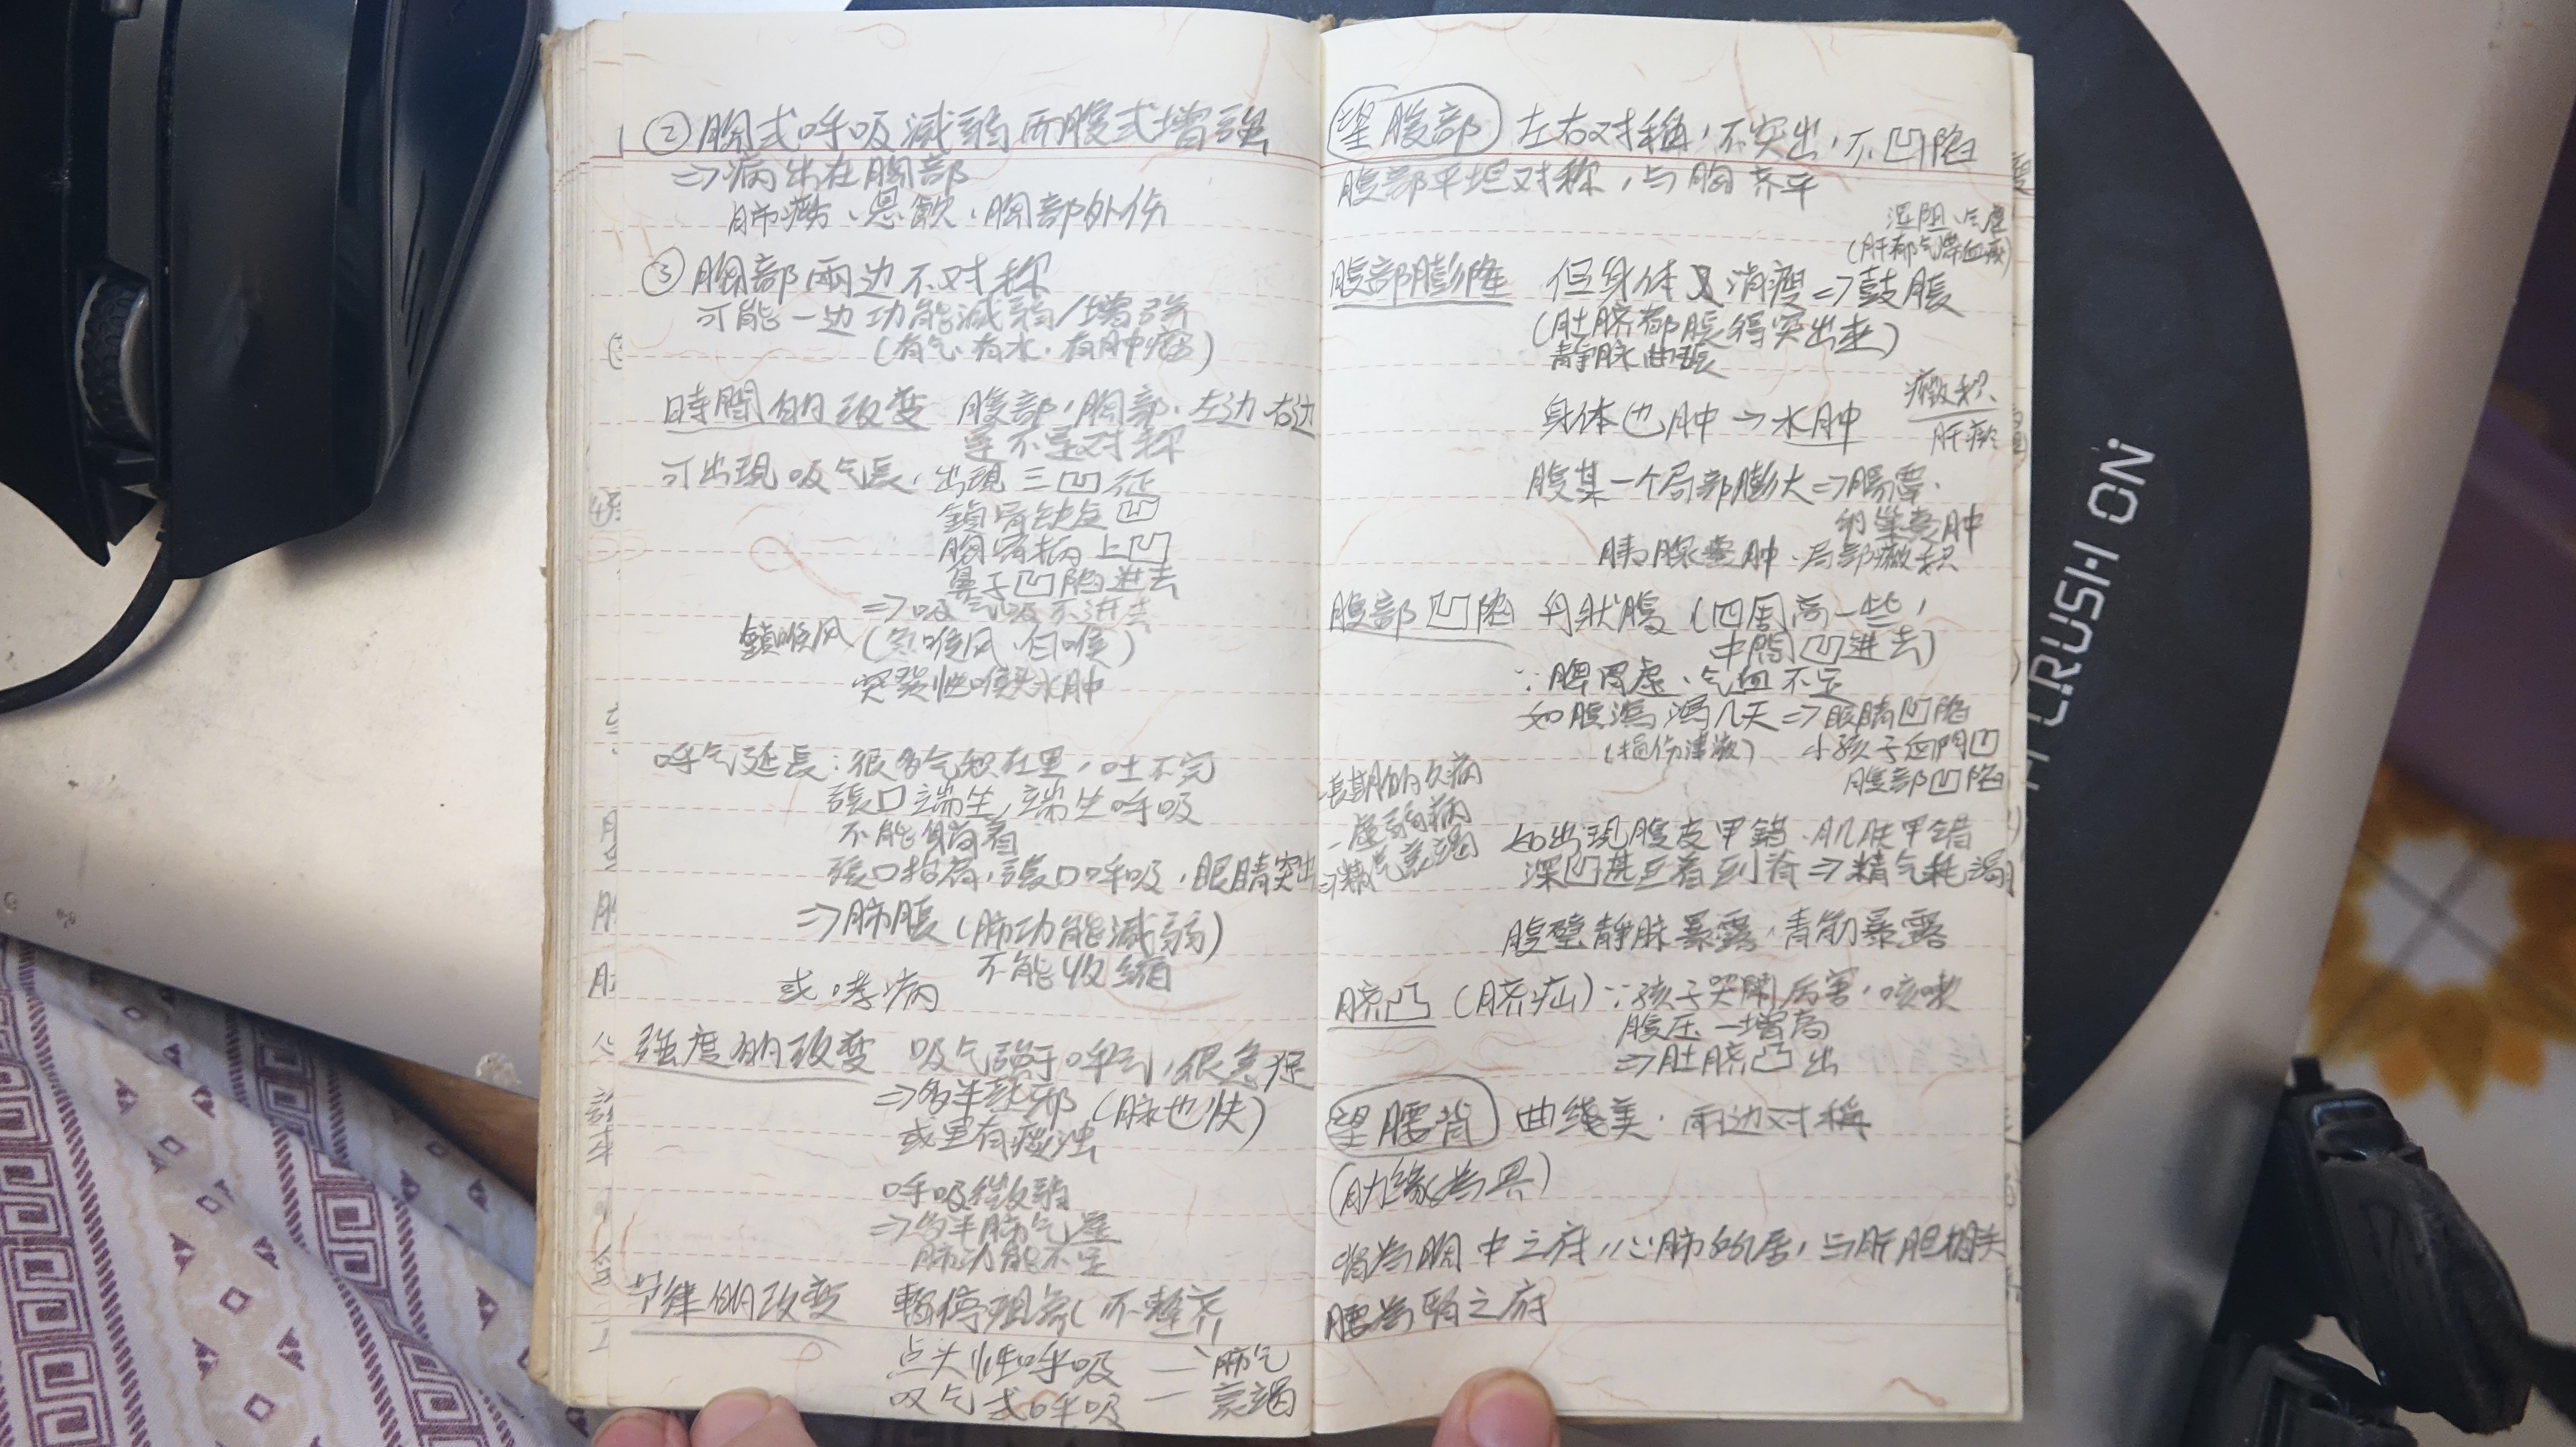 ②胸式呼吸減弱而腹式增强
⇒病出在胸部
肺痨、悬飲、胸部外伤
③胸部兩边不对称
可能一边功能減弱/增强
(有气、有水、有肿瘤)
時間的改变 腹部,胸部、左边右边
是不是对称
可出現吸气長,出現三凹征
鎖骨缺点凹
胸骨柄上凹
鼻子凹陷進去
⇒吸气吸不进去
鎖喉风(急喉风、白喉)
突发性喉头水肿
呼气延長:很多气积在里,吐不完
張口端坐,端坐呼吸
不能躺着
張口抬肩,張口呼吸,眼睛突出
⇒肺脹(肺功能減弱)
不能收縮
或哮病
强度的改变 吸气强于呼气,很急促
⇒多半熱邪(脉也快)
或里有痰浊
呼吸微弱
⇒多半肺气虚
肺功能不足
节律的改变 暫停現象(不整齐
点头性呼吸 — 肺气
叹气式呼吸 — 衰竭
望腹部 左右对稱,不突出,不凹陷
腹部平坦对称,与胸齐平
湿阻、气虚
(肝郁气滞血瘀)
腹部膨隆 但身体又消瘦⇒鼓脹
(肚脐都脹得突出来)
静脉曲張
身体也肿→水肿
癥积
肝
腹某一个局部膨大⇒腸覃、
卵巢囊肿
胰腺囊肿、局部癥积
腹部凹陷 舟狀腹(四周高一些,
中間凹進去)
∵脾胃虚、气血不足
如腹瀉瀉几天⇒眼睛凹陷
(損伤津液)、小孩子囟門凹
腹部凹陷
長期的久病
-虚弱病
⇒精气衰竭
如出現腹皮甲錯、肌肤甲错
深凹甚至着到脊⇒精气耗竭
腹壁静脉暴露,青筋暴露
脐凸(脐疝)∵孩子哭鬧厉害,咳嗽
腹压一增高
⇒肚脐凸出
望腰背 曲线美、兩边对稱
(肋缘為界)
背為胸中之府,心肺的居,与肝胆相关
腰為腎之府
CRUSH ON